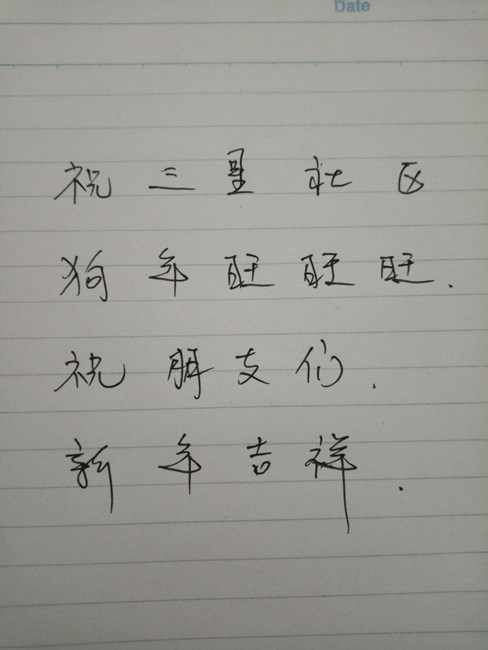 Date
祝三星社区
狗年旺旺旺.
祝朋友们.
新年吉祥.